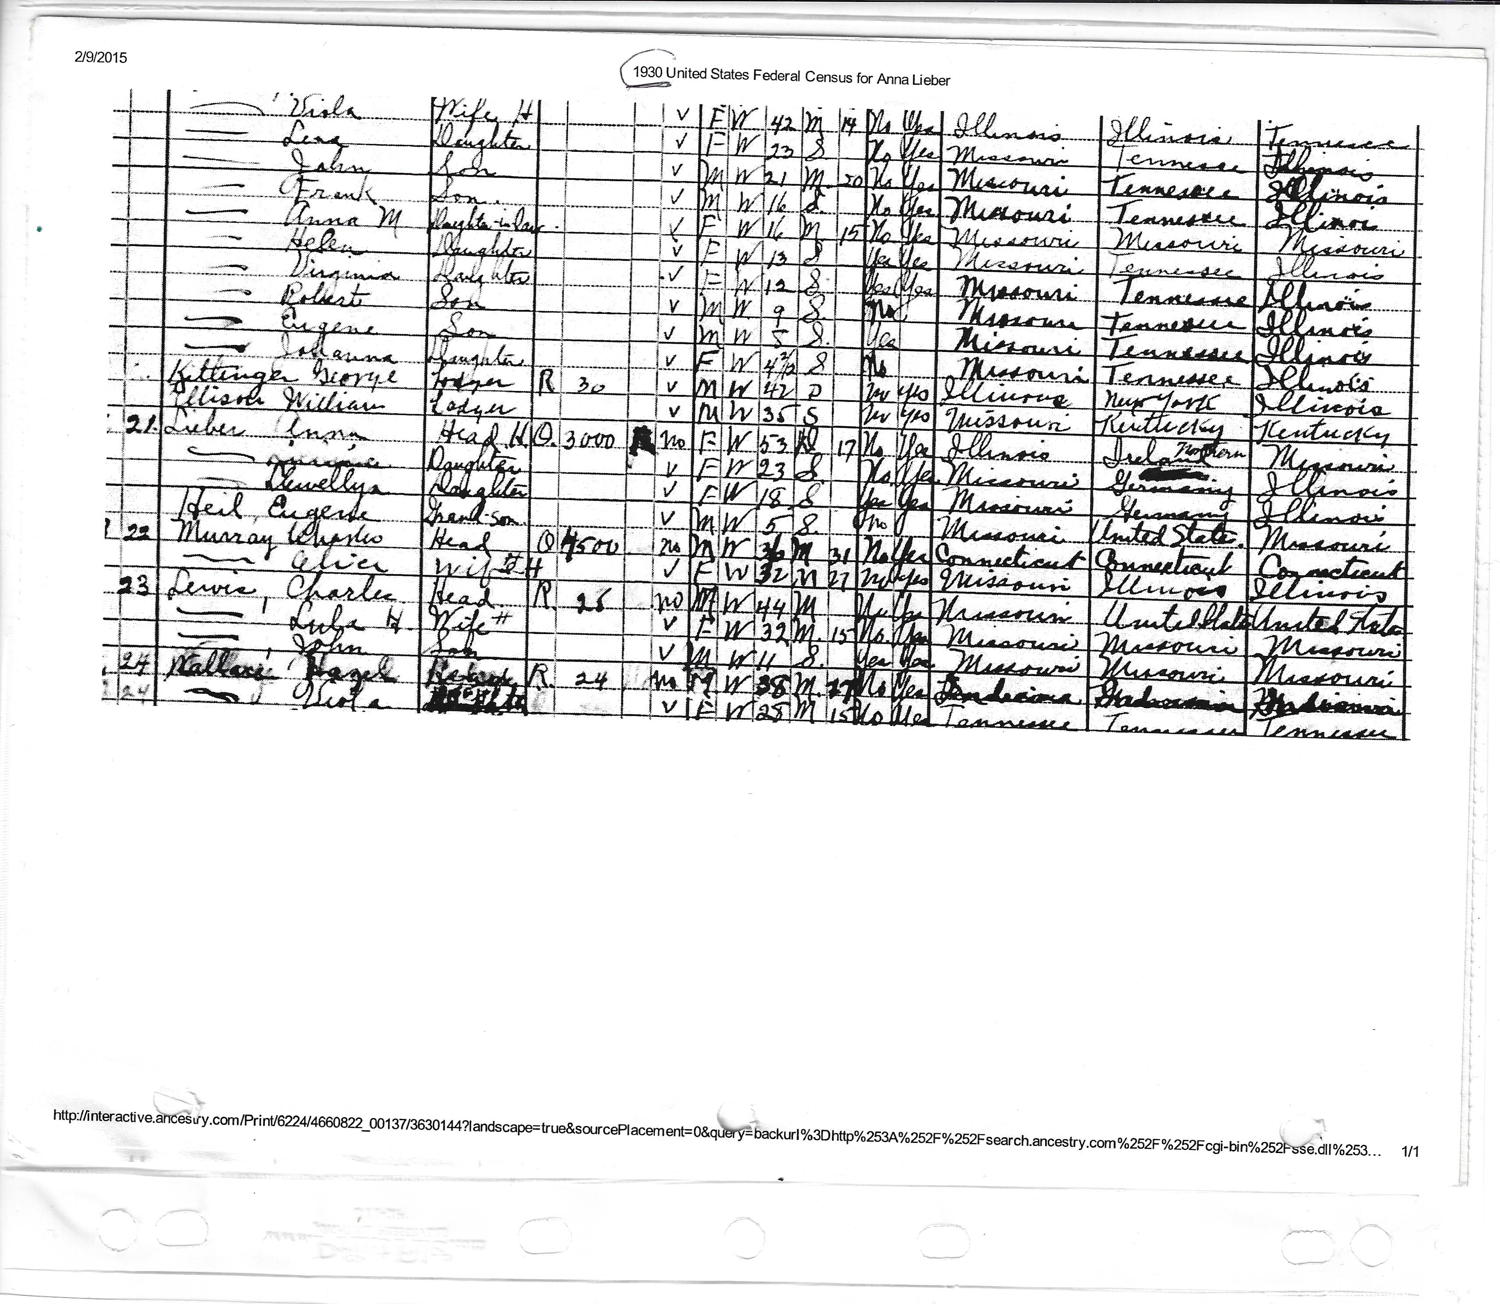 2/9/2015
1930 United States Federal Census for Anna Lieber
Viola Wife H V F W 42 M 14 No Yes Illinois Illinois Tennessee
Lena Daughter V F W 23 S No Yes Missouri Tennessee Illinois
John Son V M W 21 M 20 No Yes Missouri Tennessee Illinois
Frank Son V M W 16 S No Yes Missouri Tennessee Illinois
Anna M Daughter-in-law V F W 16 M 15 No Yes Missouri Missouri Missouri
Helen Daughter V F W 13 S Yes Yes Missouri Tennessee Illinois
Virginia Daughter V F W 12 S Yes Yes Missouri Tennessee Illinois
Robert Son V M W 9 S No Missouri Tennessee Illinois
Eugene Son V M W 5 S Yes Missouri Tennessee Illinois
Johanna Daughter V F W S No Missouri Tennessee Illinois
Kittinger George Lodger R 30 V M W 42 D No Yes Illinois New York Illinois
Ellison William Lodger V M W 35 S No Yes Missouri Kentucky Kentucky
21 Lieber Anna Head H O. 3000 R No F W 53 D 17 No Yes Illinois Ireland Northern Missouri
Daughter V F W 23 S No Yes Missouri Germany Illinois
Llewellyn Daughter V F W 18 S Yes Yes Missouri Germany Illinois
Heil, Eugene Grand-son V M W 5 S. No Missouri United State. Missouri
22 Murray Charles Head O 4500 No M W 36 M 31 No Yes Connecticut Connecticut Connecticut
Alice Wife H V F W 32 M 27 No Yes Missouri Illinois Illinois
23 Lewis, Charles Head R 25 No M W 44 M No Yes Missouri United States United States
Lula H. Wife H V F W 32 M. 15 No Yes Missouri Missouri Missouri
John Son V M W 11 S. Yes Yes Missouri Missouri Missouri
24 Wallace Hazel R 24 No M W 38 M. 27 No Yes
24 Viola V F W 28 M 15 No Yes Tennessee Tennessee Tennessee
http://interactive.ancestry.com/Print/6224/4660822_00137/3630144?landscape=true&sourcePlacement=0&query=backurl%3Dhttp%253A%252F%252Fsearch.ancestry.com%252F%252Fcgi-bin%252Fsse.dll%253… 1/1